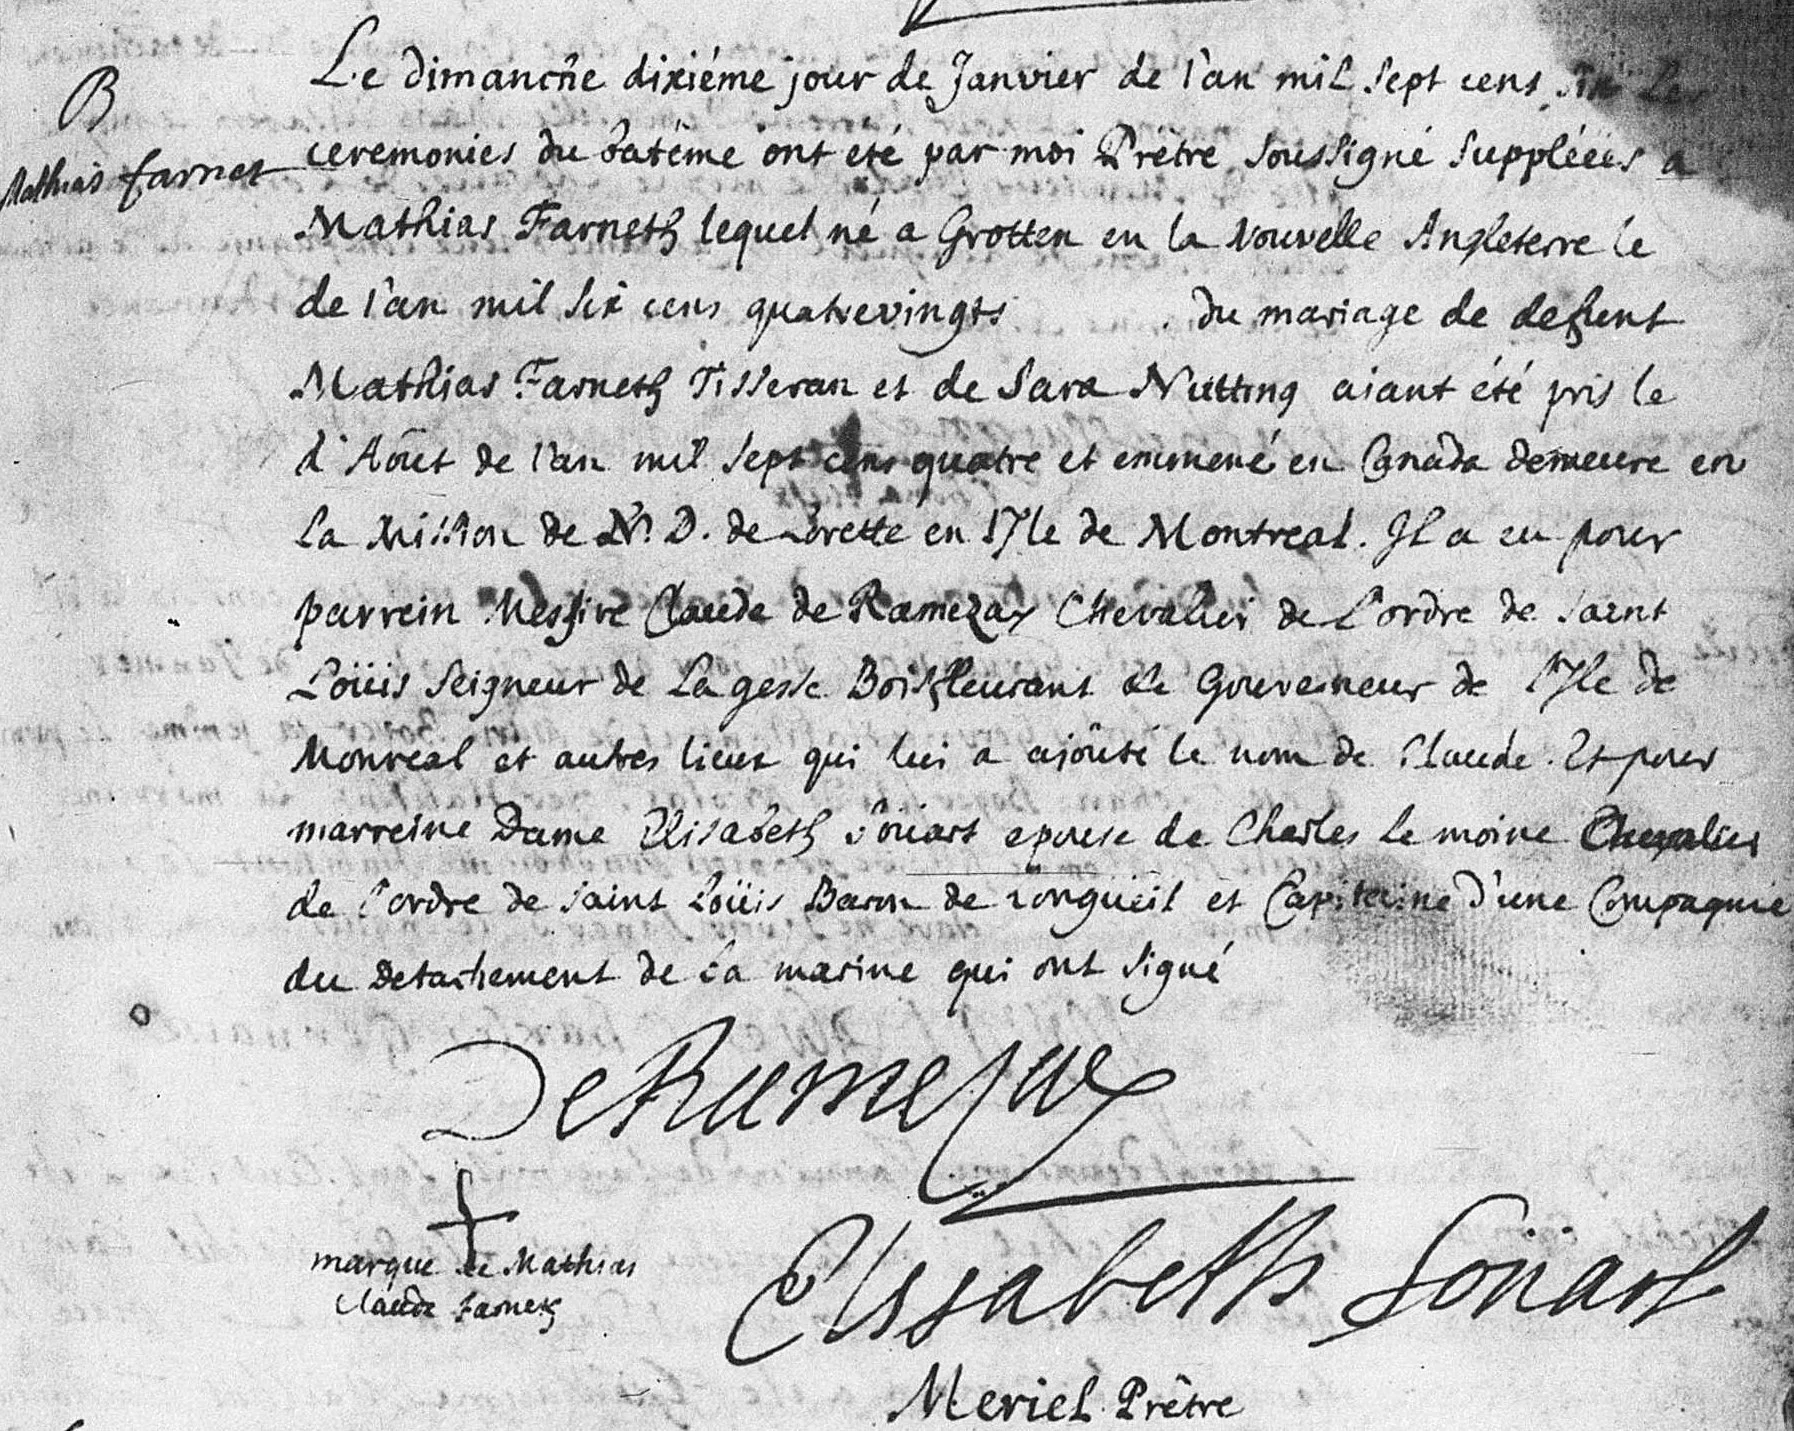 B
Mathias farnet
Le dimanche dixiéme jour de Janvier de l'an mil sept cens six Les
ceremonies du batême ont eté par moi Prêtre soussigné suppléées a
Mathias Farneth lequel né a Grotten en la Nouvelle Angleterre le
de l'an mil six cens quatrevingts . du mariage de defunt
Mathias Farneth Tisseran et de Sara Nutting aiant été pris le
d'Aoust de l'an mil sept cens quatre et emmené en Canada demeure en
la Mission de N. D. de Lorette en l'Ile de Montreal. Il a eu pour
parrein Messire Claude de Ramezay Chevalier de l'ordre de saint
Loüis Seigneur de La gesse Boisfleurant & Gouverneur de l'Ile de
Monreal et autres lieux qui lui a ajouté le nom de Claude. Et pour
marreine Dame Elisabeth Soüart epouse de Charles le moine Chevalier
de l'ordre de saint Loüis Baron de Longüeil et Capitaine d'une Compagnie
du Detachement de la marine qui ont signé
DeRamezay
marque de Mathias
Claude Farneth
Elisabeth Soüart
Meriel Prêtre